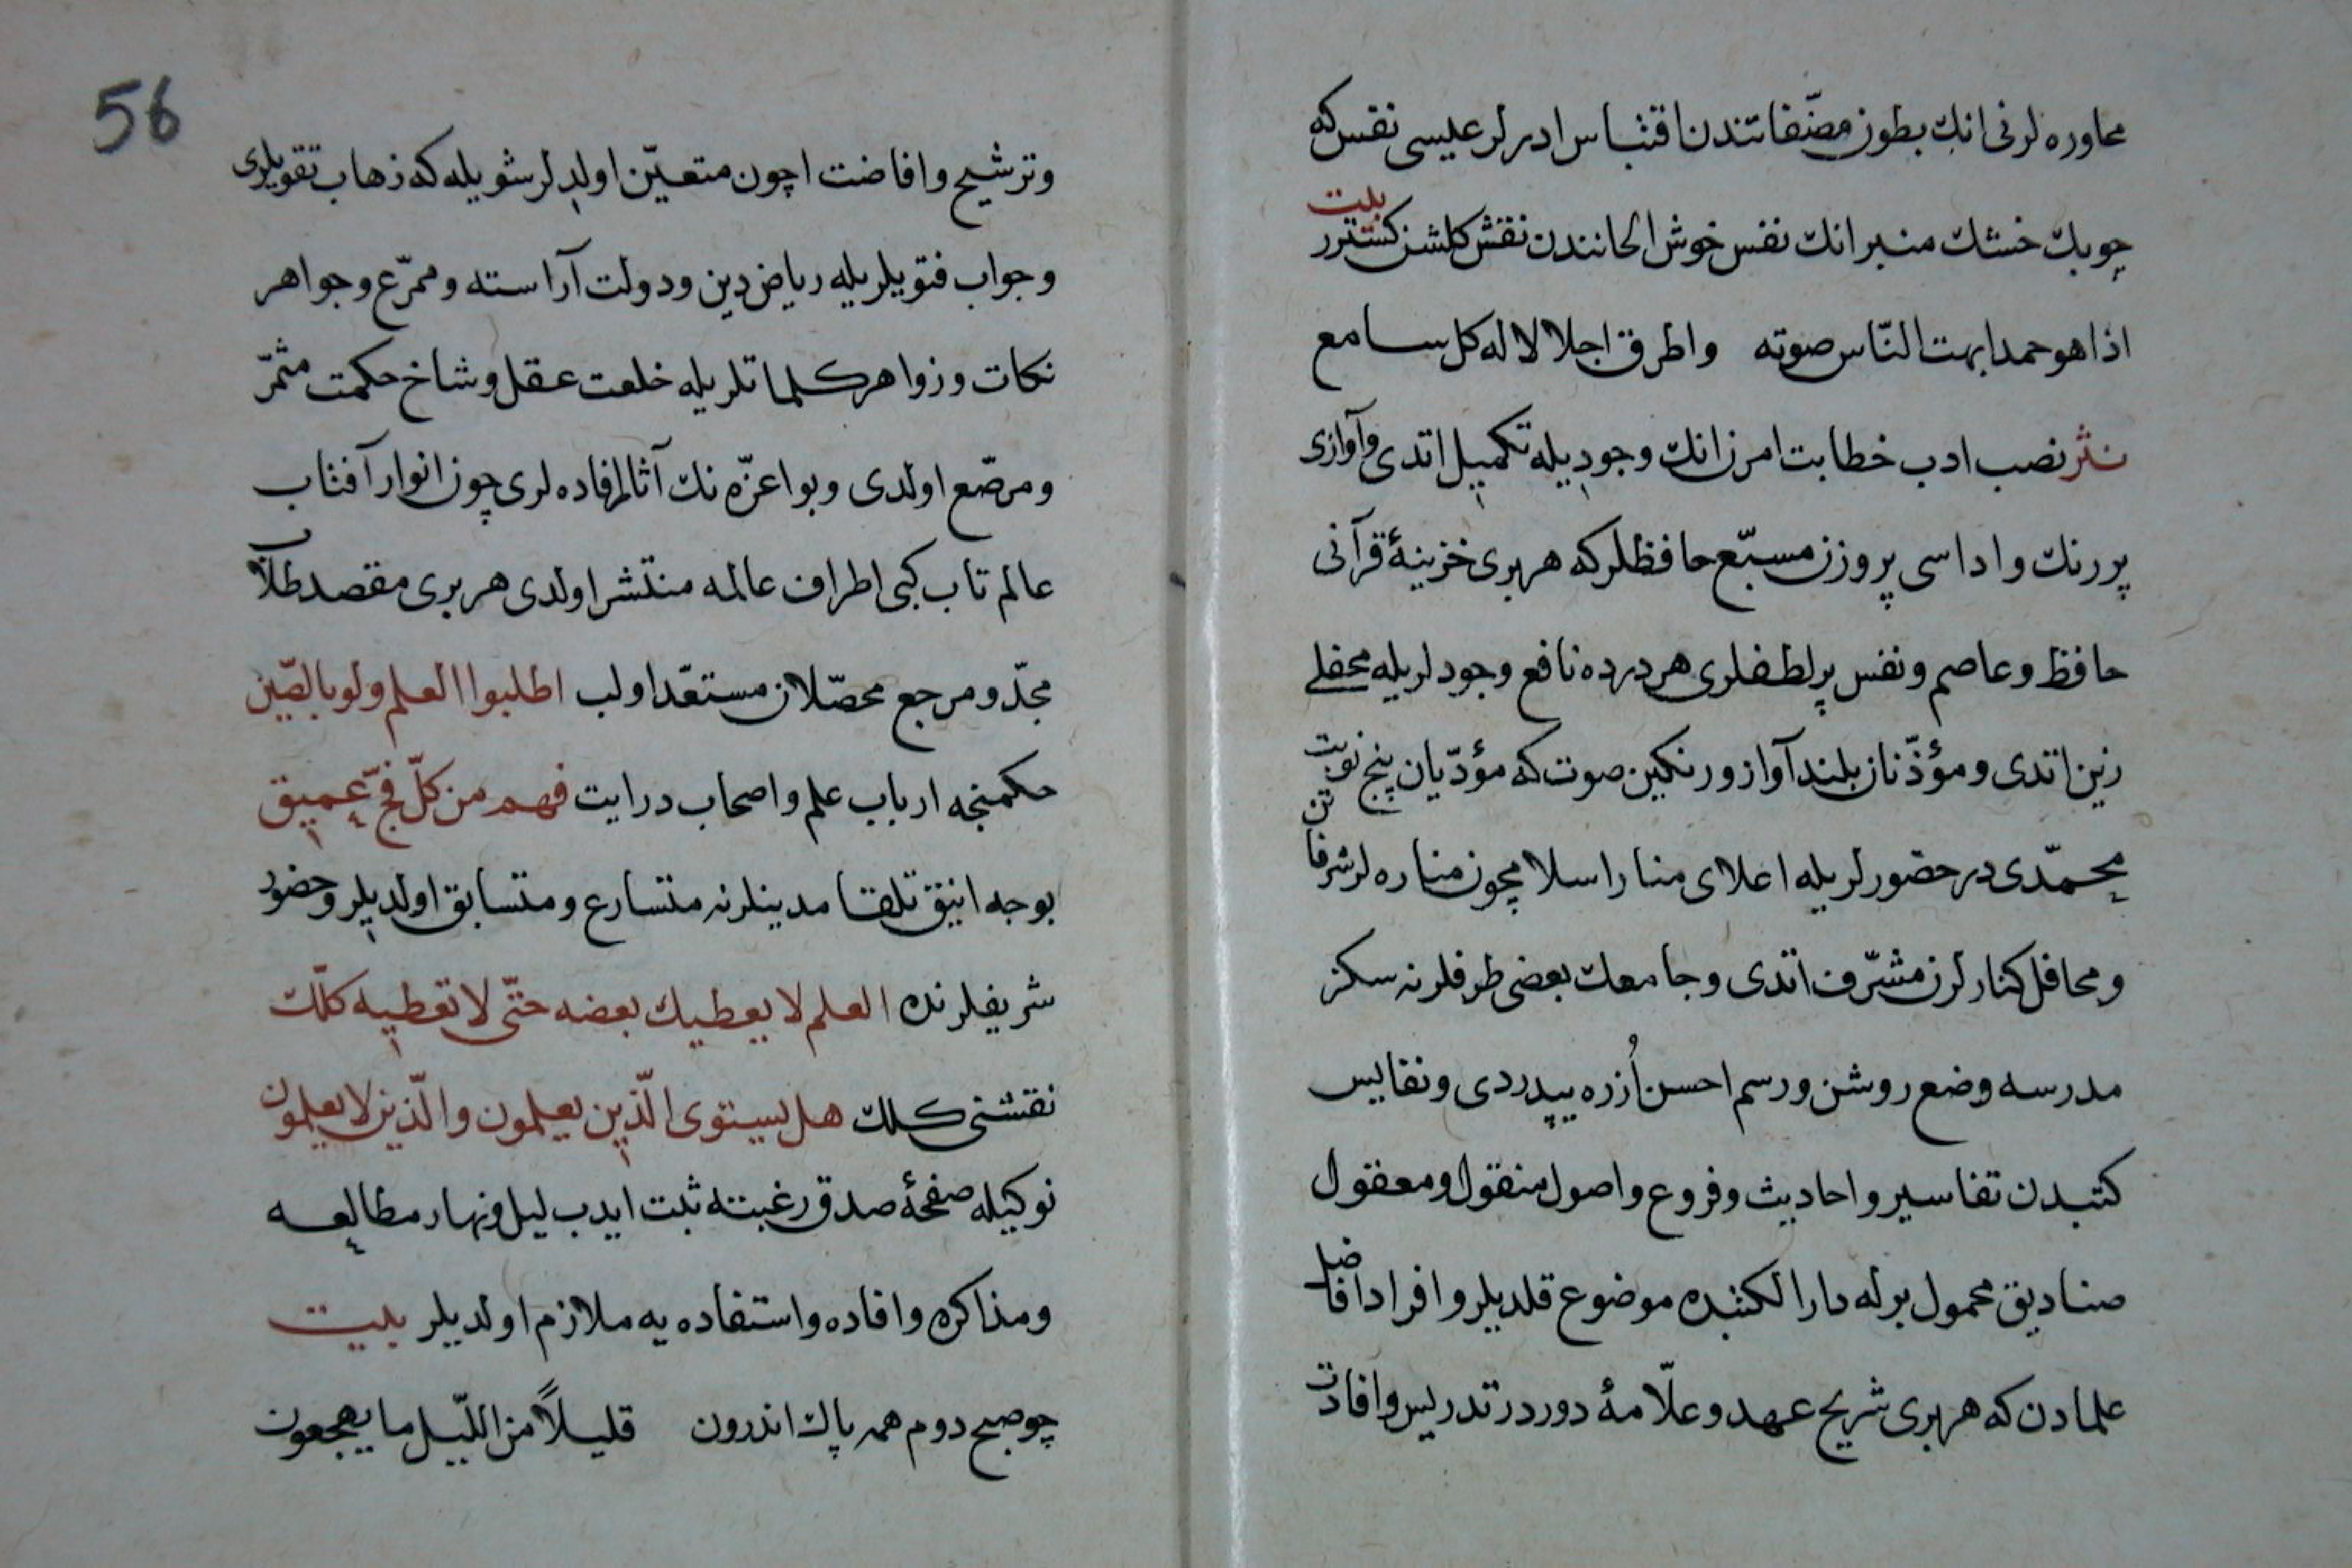 محاوره لرنی انك بطون مصنّفاتندن اقتباس ادرلر عیسی نفس كه
چوبك خشك منبر انك نفس خوش الحانندن نقش كلشن كسترر بیت
اذا هو حمد ابهت النّاس صوته واطرق اجلالا له كل سامع
نثر نصب ادب خطابت امرن انك وجودیله تكمیل اتدی وآوازی
پر رنك واداسی پر وزن مسبّع حافظلر كه هر بری خزینهٔ قرآنی
حافظ وعاصم ونفس پر لطفلری هر درده نافع وجودلریله محفلی
زین اتدی ومؤذّنان بلند آواز ورنكین صوت كه مؤدّیان پنج نوبت
محمّدی در حضورلریله اعلای منار اسلامچون مناره لر شرفاتن
ومحافل كنارلرن مشرّف اتدی وجامعك بعضی طرفلرنه سكز
مدرسه وضع روشن ورسم احسن اُزره یپدردی ونفایس
كتبدن تفاسیر واحادیث وفروع واصول منقول ومعقول
صنادیق محمول برله دار الكتبده موضوع قلدیلر وافراد افاضل
علمادن كه هر بری شریح عهد وعلّامهٔ دوردر تدریس وافادت
56
وترشیح وافاضت اچون متعیّن اولدلر شویله كه زهاب تقویلری
وجواب فتویلریله ریاض دین ودولت آراسته وممرّع وجواهر
نكات وزواهر كلماتلریله خلعت عقل وشاخ حكمت مثمرّ
ومرصّع اولدی وبو اعزّه نك آثار افاده لری چون انوار آفتاب
عالم تاب كبی اطراف عالمه منتشر اولدی هر بری مقصد طلّاب
مجدّ ومرجع محصّلان مستعدّ اولب اطلبوا العلم ولو بالصّین
حكمنجه ارباب علم واصحاب درایت فهم من كلّ فجّ عمیق
بوجه انیق تلقا مدینلرنه متسارع ومتسابق اولدیلر وحضور
شریفلرنده العلم لا یعطیك بعضه حتّی لا تعطیه كلّك
نقشنی كلك هل یستوی الّذین یعلمون والّذین لا یعلمون
نوكیله صفحهٔ صدق رغبتنه ثبت ایدب لیل ونهار مطالعه
ومذاكره وافاده واستفاده یه ملازم اولدیلر بیت
چو صبح دوم همه پاك اندرون قلیلاً من اللّیل ما یهجعون